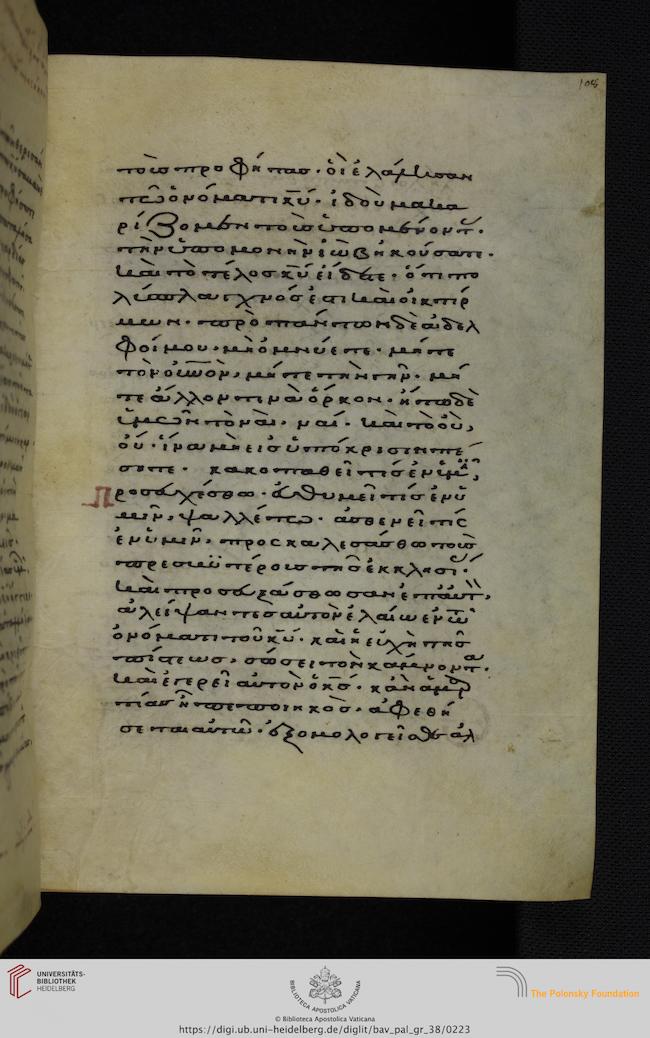 104
τοὺς προφήτας· οἳ ἐλάλησαν
τῶ ὀνόματι κ̅υ̅· ἰδοὺ μακα
ρίζομεν τοὺς ὑπομένοντ(ας)·
τὴν ὑπομονὴν ἰὼβ ἠκούσατε·
καὶ τὸ τέλος κ̅υ̅ εἴδετε· ὅτι πο
λύσπλαγχνός ἐστι καὶ οἰκτίρ
μων· πρὸ πάντων δὲ ἀδελ
φοί μου, μὴ ὀμνύετε· μήτε
τὸν ο̅υ̅ν̅ο̅ν̅, μήτε τὴν γῆν· μή
τε ἄλλον τινὰ ὅρκον· ἤτω δὲ
ὑμῶν τὸ ναὶ, ναί· καὶ τὸ οὒ,
οὔ· ἵνα μὴ εἰς ὑπόκρισιν πέ
σητε· κακοπαθεῖ τίς ἐν ὑμῖν;
Προσευχέσθω· ἀθυμεῖ τίς ἐν ὑ
μῖν, ψαλλέτω· ἀσθενεῖ τίς
ἐν ὑμῖν, προσκαλεσάσθω τοὺς
πρεσβυτέρους τῆς ἐκκλησί(ας)·
καὶ προσευξάσθωσαν ἐπ' αὐτὸν,
ἀλείψαντες αὐτὸν ἐλαίω ἐν τῶ
ὀνόματι τοῦ κ̅υ̅· καὶ ἡ εὐχὴ τῆς
πίστεως, σώσει τὸν κάμνοντα·
καὶ ἐγερεῖ αὐτὸν ὁ κ̅ς̅· κἂν ἁμαρ
τίας ἦ πεποιηκὼς· ἀφεθή
σεται αὐτῶ· ἐξομολογεῖσθε ἀλ
UNIVERSITÄTS-
BIBLIOTHEK
HEIDELBERG
BIBLIOTECA APOSTOLICA VATICANA
The Polonsky Foundation
© Biblioteca Apostolica Vaticana
https://digi.ub.uni-heidelberg.de/diglit/bav_pal_gr_38/0223